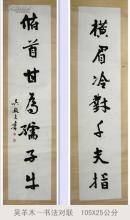 横眉冷對千夫指
俯首甘為孺子牛
吴羊木—书法对联 105X25公分